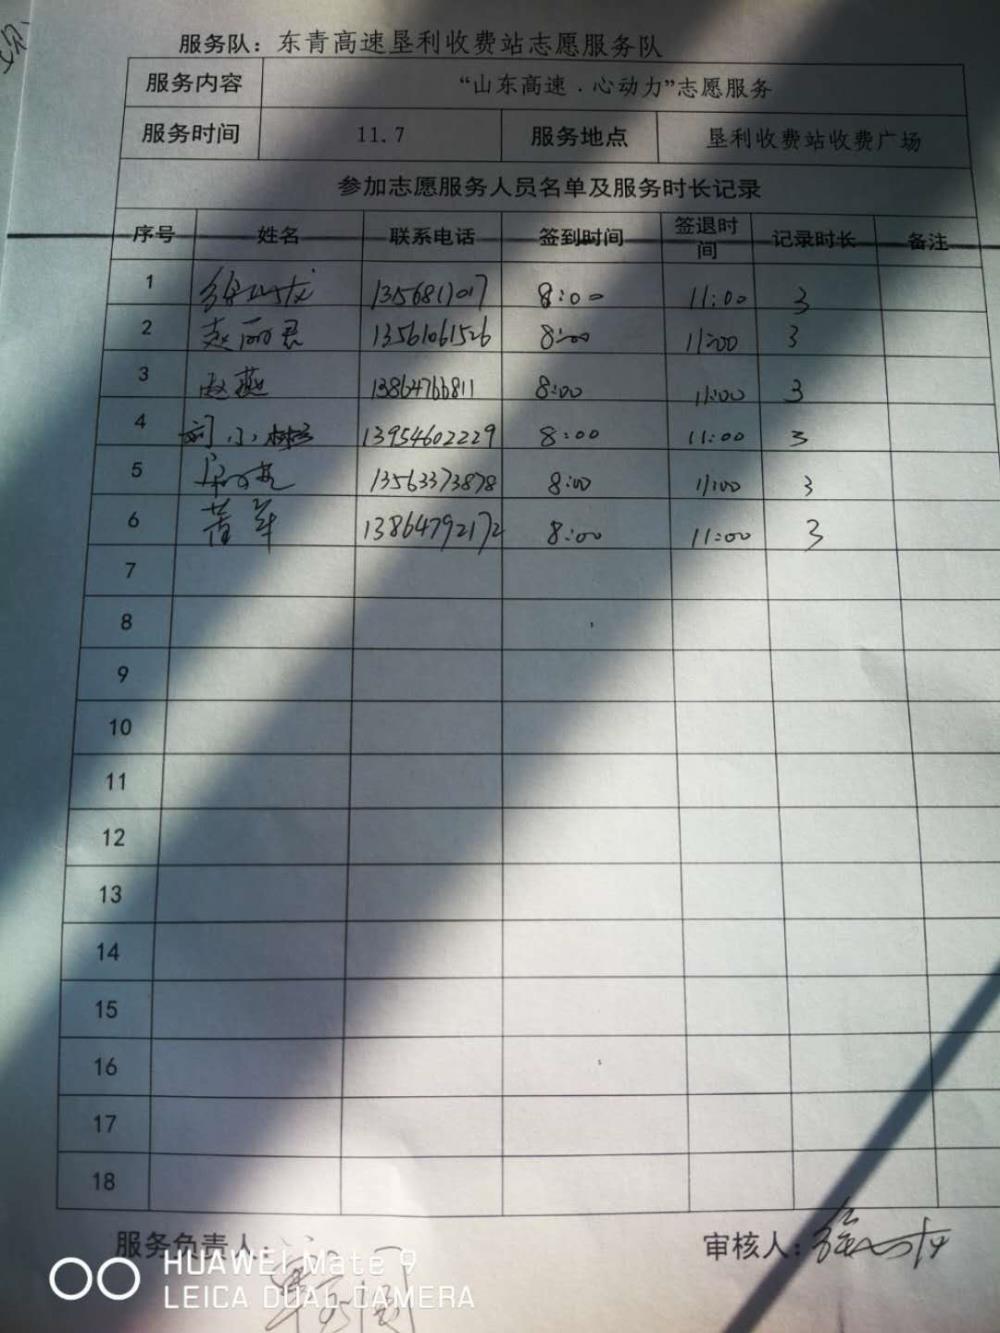 服务队：东青高速垦利收费站志愿服务队
服务内容 “山东高速．心动力”志愿服务
服务时间 11.7 服务地点 垦利收费站收费广场
参加志愿服务人员名单及服务时长记录
序号 姓名 联系电话 签到时间 签退时间 记录时长 备注
1 8:00 11:00 3
2 赵丽君 13561061526 8:00 11:00 3
3 赵燕 13864766811 8:00 11:00 3
4 刘小 13954602229 8:00 11:00 3
5 13563373878 8:00 11:00 3
6 军 13864792172 8:00 11:00 3
7
8
9
10
11
12
13
14
15
16
17
18
服务负责人： 审核人：
HUAWEI Mate 9
LEICA DUAL CAMERA